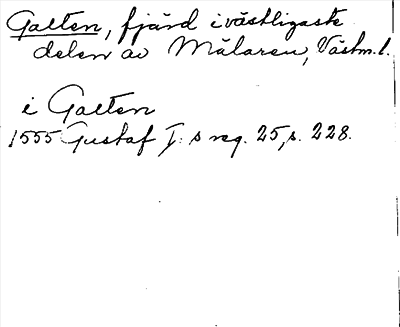 Galten, fjärd i västligaste
delen av Mälaren, Västm. l.
i Galten
1555 Gustaf I: s reg. 25, s. 228.